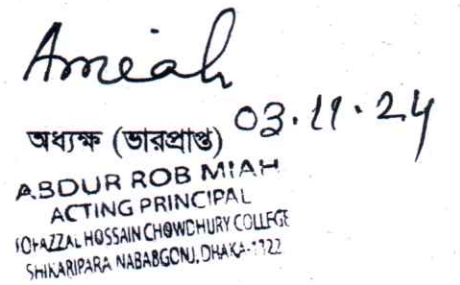 Amiah
03.11.24
অধ্যক্ষ (ভারপ্রাপ্ত)
ABDUR ROB MIAH
ACTING PRINCIPAL
TOFAZZAL HOSSAIN CHOWDHURY COLLEGE
SHIKARIPARA NABABGONJ, DHAKA-1322